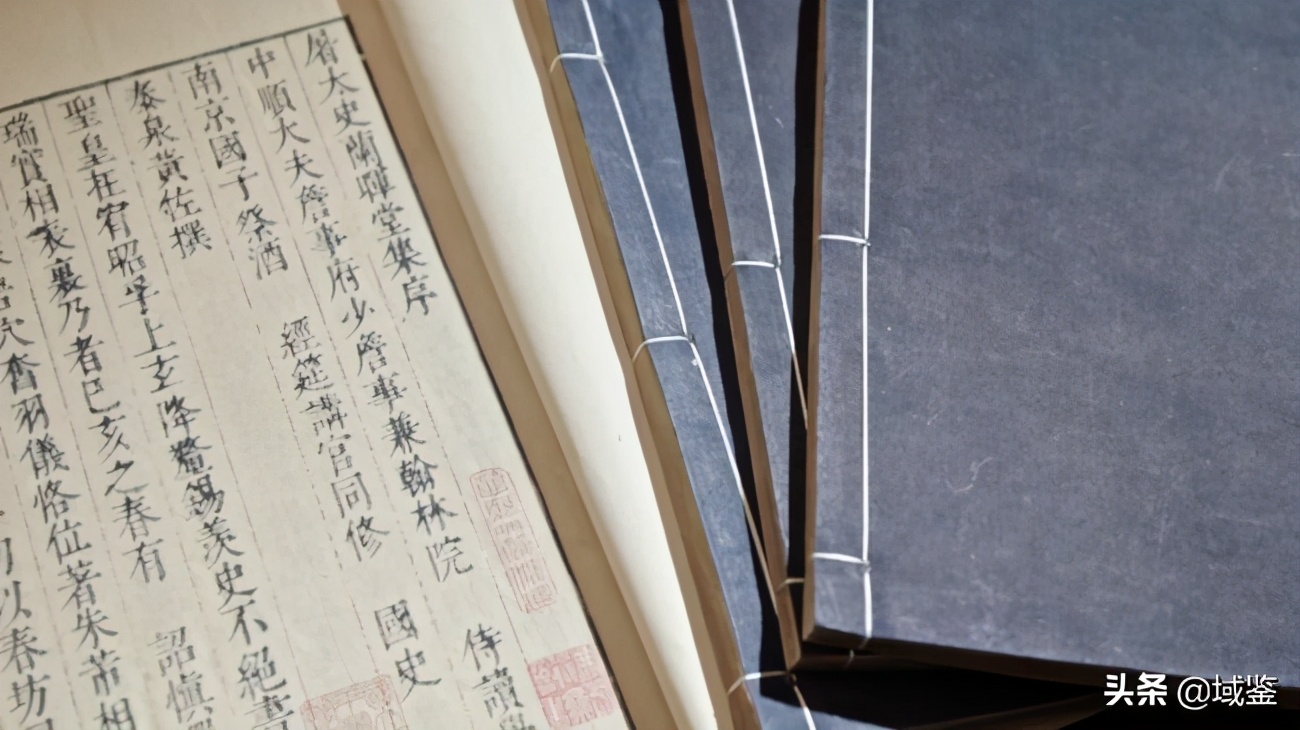 屠太史蘭暉堂集序
中順大夫詹事府少詹事兼翰林院 侍讀學
南京國子祭酒 經筵講官同修 國史
泰泉黃佐撰
聖皇在宥昭孚上玄降鼇錫羨史不絕書
瑞實相衮襄乃者巳亥之春有 詔愼
穴㑹羽儀恪位著朱芾相
以春坊
头条 @域鉴